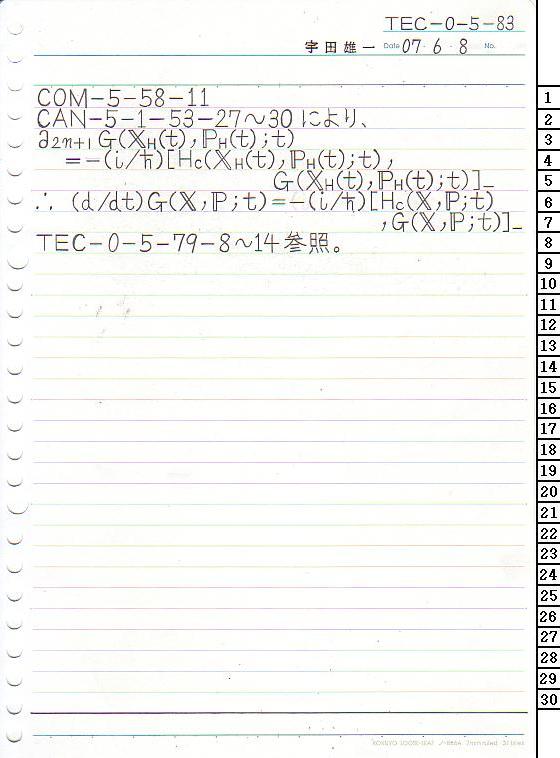 TEC-0-5-83
宇田雄一 Date 07・6・8 No.
COM-5-58-11
CAN-5-1-53-27～30により、
∂2n+1 G(𝕏H(t),ℙH(t);t)
=-(i/ħ)[Hc(𝕏H(t),ℙH(t);t),
G(𝕏H(t),ℙH(t);t)]_
∴ (d/dt)G(𝕏,ℙ;t)=-(i/ħ)[Hc(𝕏,ℙ;t)
,G(𝕏,ℙ;t)]_
TEC-0-5-79-8～14参照。
1
2
3
4
5
6
7
8
9
10
11
12
13
14
15
16
17
18
19
20
21
22
23
24
25
26
27
28
29
30
KOKUYO LOOSE-LEAF ノ-836A 7mm ruled 31 lines